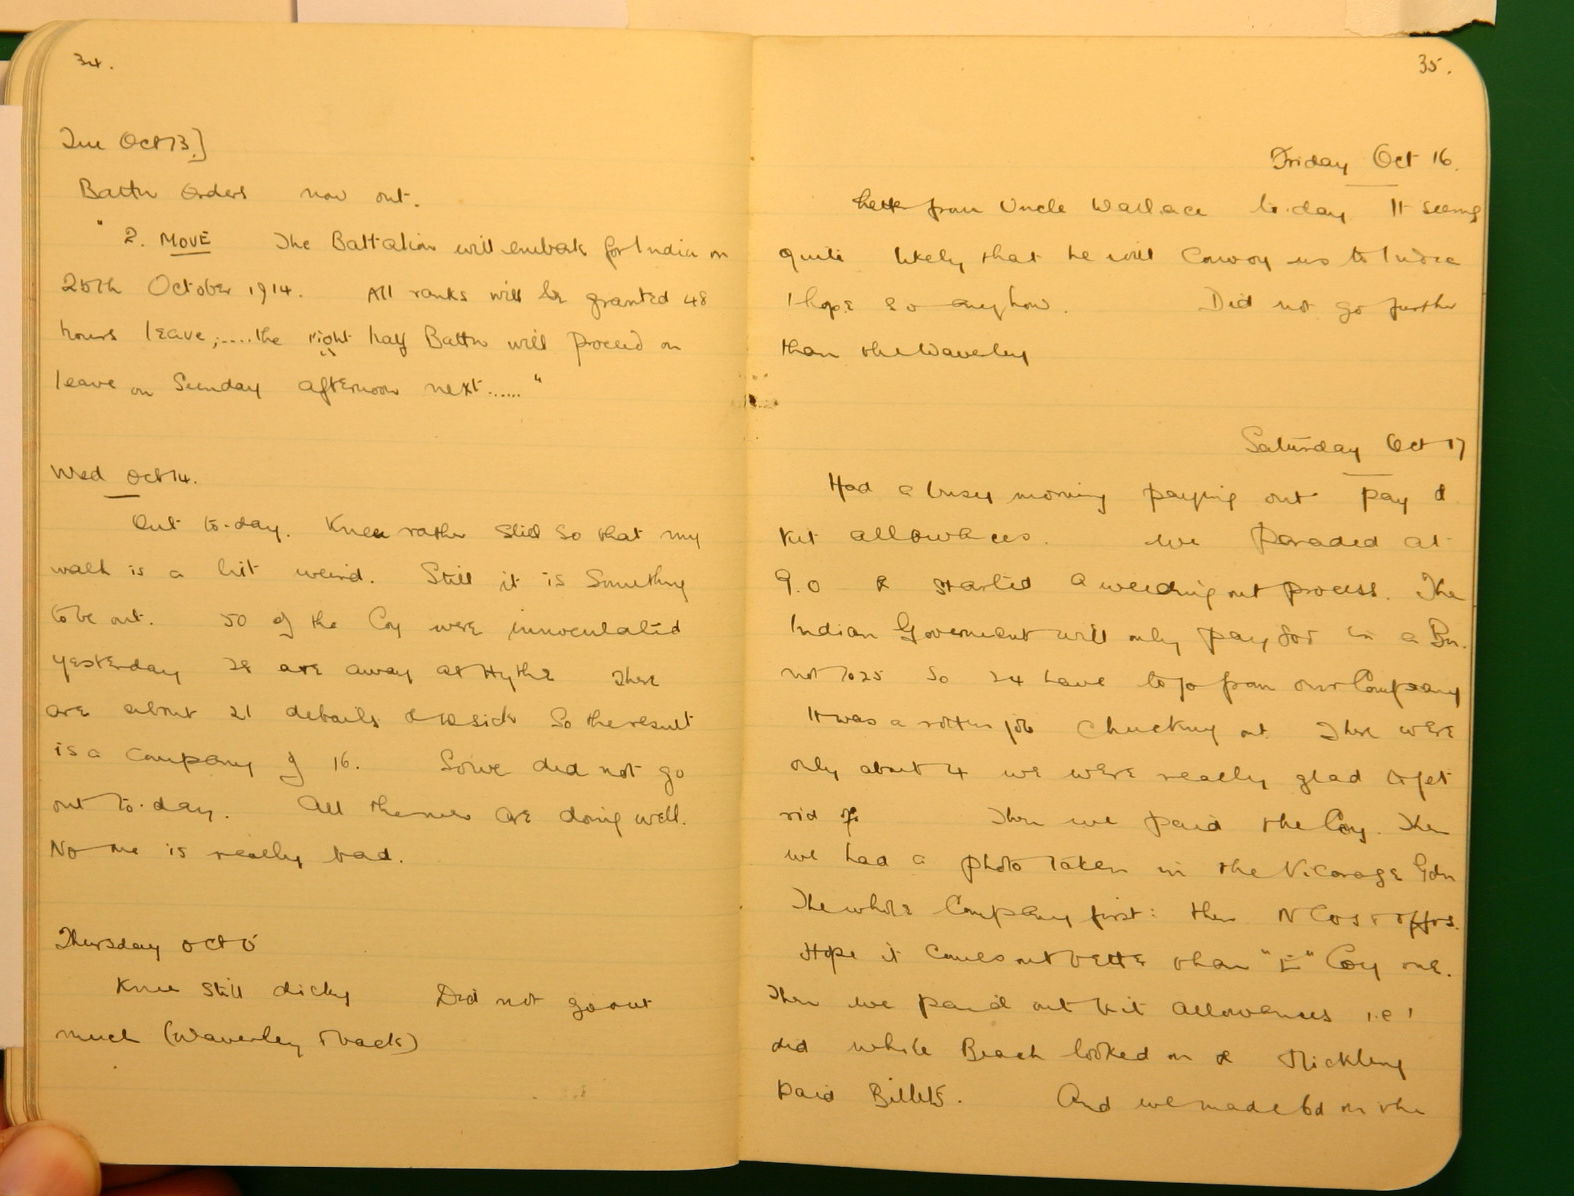 34.
Tue Oct 13.]
Battn Orders now out.
" 2. MOVE The Battalion will embark for India on
25th October 1914. All ranks will be granted 48
hours leave;.....the right half Battn will proceed on
leave on Sunday afternoon next......"
Wed Oct 14.
Out to-day. Knee rather stiff so that my
walk is a bit weird. Still it is something
to be out. 50 of the Coy were innoculated
yesterday 28 are away at Hythe There
are about 21 details & 10 sick So the result
is a company of 16. So we did not go
out to-day. All the men are doing well.
No one is really bad.
Thursday Oct 15
Knee still dicky Did not go out
much (Waverley & back)
35.
Friday Oct 16.
from Uncle Wallace to-day It seems
quite likely that he will Convoy us to India
I hope so anyhow. Did not go further
than the Waverley
Saturday Oct 17
Had a busy morning paying out pay &
kit allowances. We paraded at
9.0 & started a weeding out process. The
Indian Goverment will only pay for in a Bn.
not 1025 So 24 have to go from our Company
It was a rotten job chucking out There were
only about 4 we were really glad to get
rid of Then we paid the Coy. Then
we had a photo taken in the Vicarage Gdn
The whole Company first: then NCOs & offrs.
Hope it comes out better than "E" Coy one.
Then we paid out kit allowances i.e I
did while Beach looked on & Stickling
paid Billets. And we made 6d on the